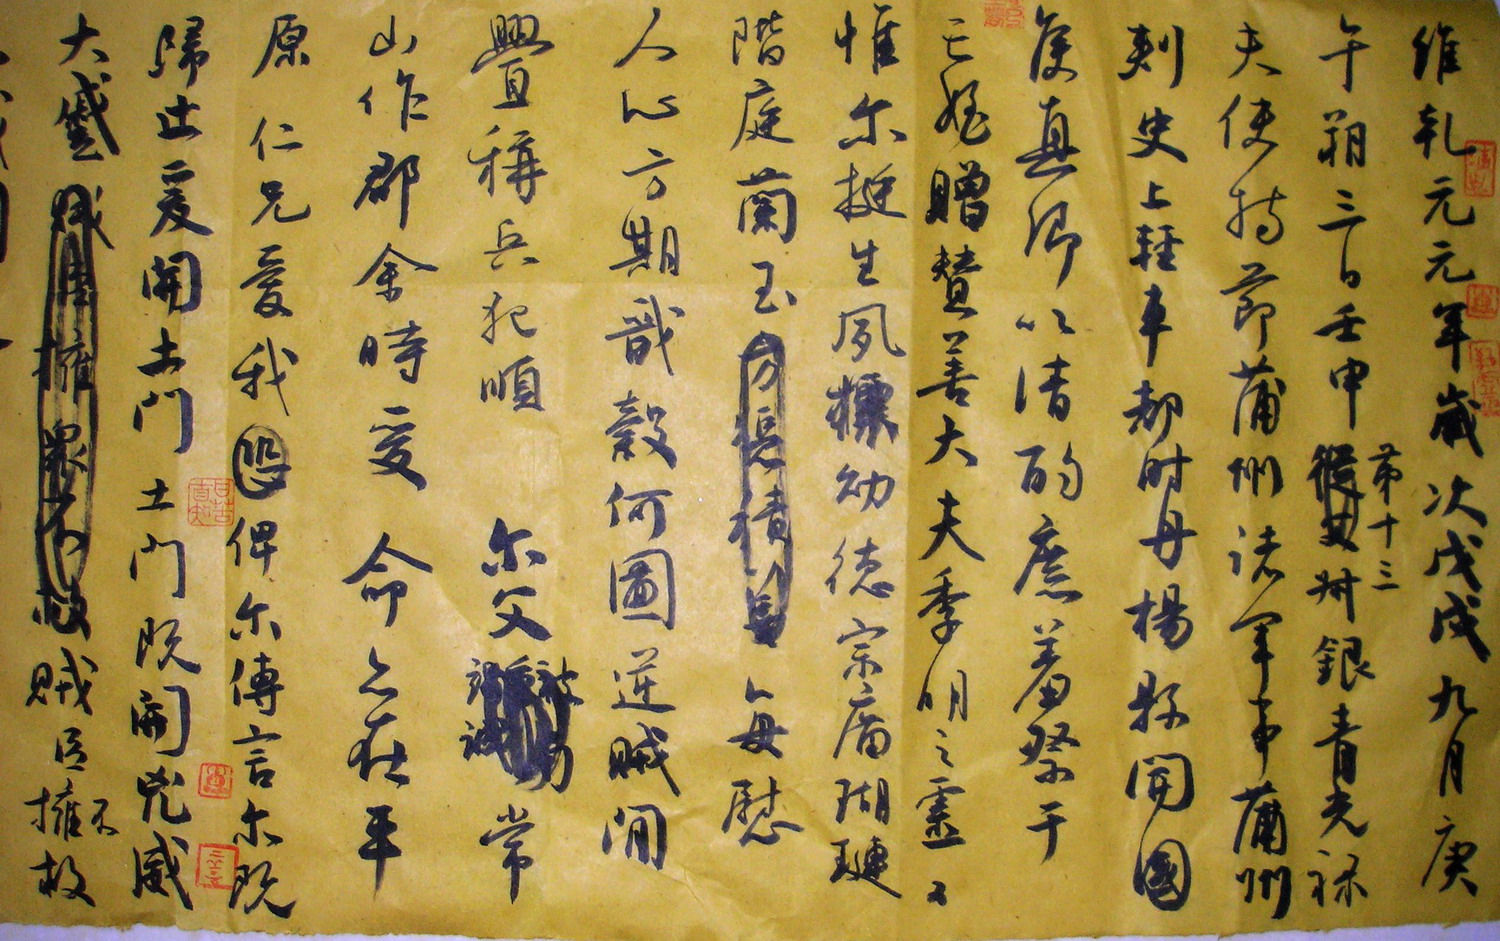 維乾元元年歲次戊戌九月庚
午朔三日壬申第十三叔銀青光祿
夫使持節蒲州諸軍事蒲州
刺史上輕車都尉丹楊縣開國
侯真卿以清酌庶羞祭于
亡姪贈贊善大夫季明之靈曰
惟爾挺生夙標幼德宗廟瑚璉
階庭蘭玉方憑積善每慰
人心方期戩穀何圖逆賊閒
釁稱兵犯順爾父竭誠常
山作郡余時受命亦在平
原仁兄愛我恐俾爾傳言爾既
歸止爰開土門土門既開凶威
大蹙賊臣擁眾不救賊臣擁不救